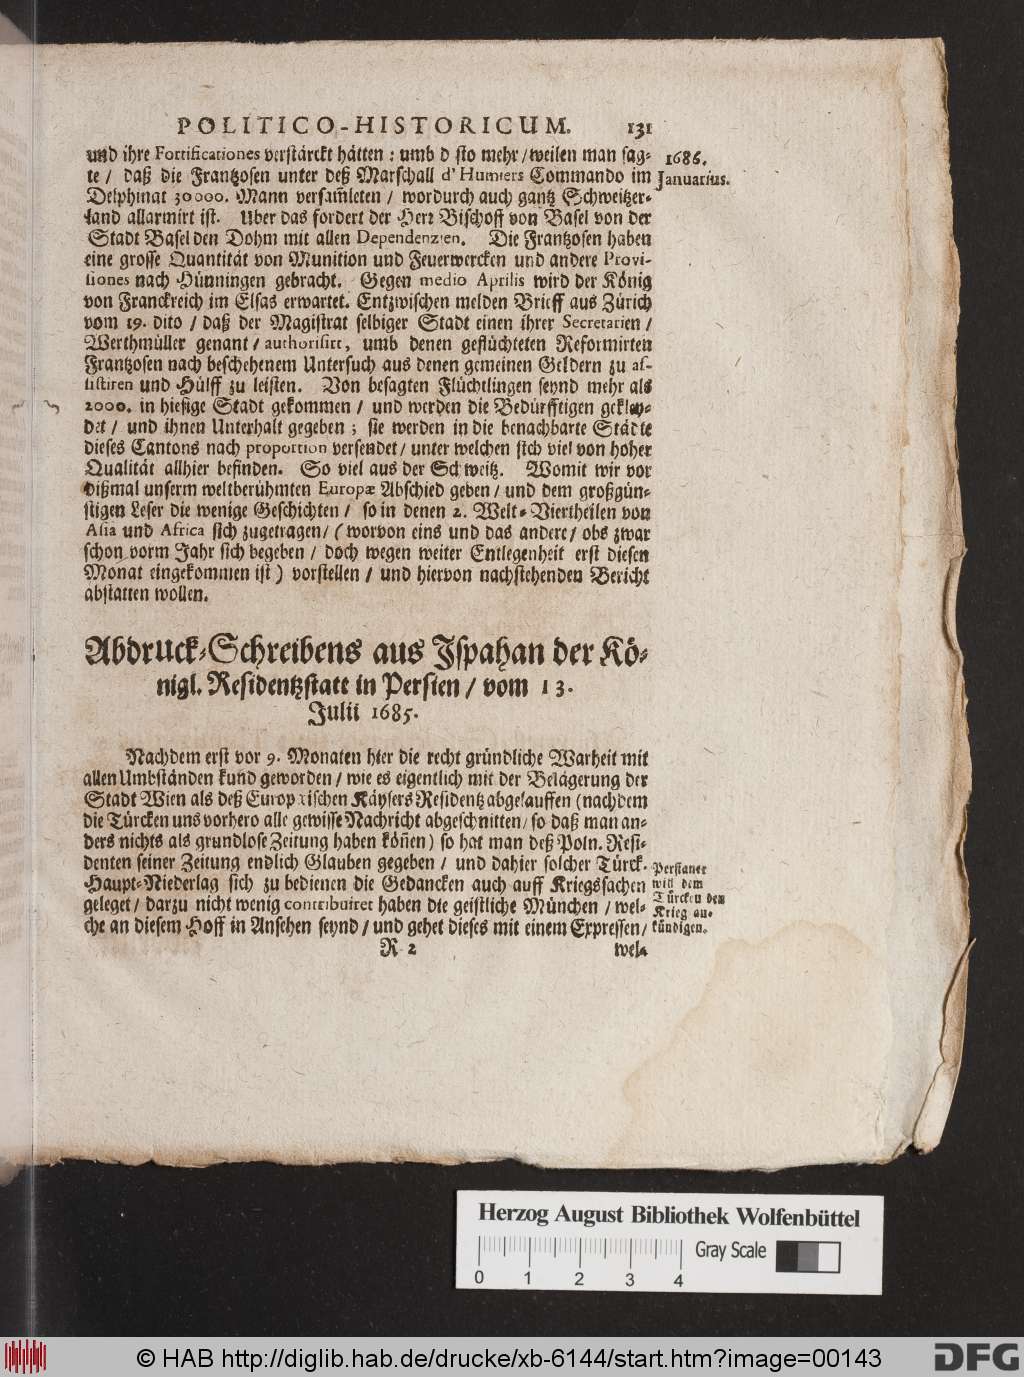 POLITICO-HISTORICUM. 131
und ihre Fortificationes verstärckt hätten : umb d sto mehr / weilen man sag-
te / daß die Frantzosen unter deß Marschall d'Humiers Commando im
Delphinat 30000. Mann versam̃leten / wordurch auch gantz Schweitzer-
land allarmirt ist. Uber das fordert der Herr Bischoff von Basel von der
Stadt Basel den Dohm mit allen Dependenzien. Die Frantzosen haben
eine grosse Quantität von Munition und Feuerwercken und andere Provi-
siones nach Hünningen gebracht. Gegen medio Aprilis wird der König
von Franckreich im Elsas erwartet. Entzwischen melden Brieff aus Zürich
vom 19. dito / daß der Magistrat selbiger Stadt einen ihrer Secretarien /
Werthmüller genant / authorisirt, umb denen geflüchteten Reformirten
Frantzosen nach beschehenem Untersuch aus denen gemeinen Geldern zu as-
sistiren und Hülff zu leisten. Von besagten Flüchtlingen seynd mehr als
2000. in hiesige Stadt gekommen / und werden die Bedürfftigen gekley-
det / und ihnen Unterhalt gegeben ; sie werden in die benachbarte Städte
dieses Cantons nach proportion versendet / unter welchen sich viel von hoher
Qualität allhier befinden. So viel aus der Schweitz. Womit wir vor
dißmal unserm weltberühmten Europæ Abschied geben / und dem großgün-
stigen Leser die wenige Geschichten / so in denen 2. Welt-Viertheilen von
Asia und Africa sich zugetragen / ( worvon eins und das andere / obs zwar
schon vorm Jahr sich begeben / doch wegen weiter Entlegenheit erst diesen
Monat eingekommen ist ) vorstellen / und hiervon nachstehenden Bericht
abstatten wollen.
1686.
Januarius.
Abdruck-Schreibens aus Ispahan der Kö-
nigl. Residentzstatt in Persien / vom 13.
Julii 1685.
Nachdem erst vor 9. Monaten hier die recht gründliche Warheit mit
allen Umbständen kund geworden / wie es eigentlich mit der Belägerung der
Stadt Wien als deß Europæischen Käysers Residentz abgelauffen (nachdem
die Türcken uns vorhero alle gewisse Nachricht abgeschnitten / so daß man an-
ders nichts als grundlose Zeitung haben kön̄en) so hat man deß Poln. Resi-
denten seiner Zeitung endlich Glauben gegeben / und dahier solcher Türck.
Haupt-Niederlag sich zu bedienen die Gedancken auch auff Kriegssachen
geleget / darzu nicht wenig contribuiret haben die geistliche München / wel-
che an diesem Hoff in Ansehen seynd / und gehet dieses mit einem Expressen /
Persianer
will dem
Türcken den
Krieg an-
kündigen.
R 2 wel-
Herzog August Bibliothek Wolfenbüttel
0 1 2 3 4 Gray Scale
© HAB http://diglib.hab.de/drucke/xb-6144/start.htm?image=00143
DFG